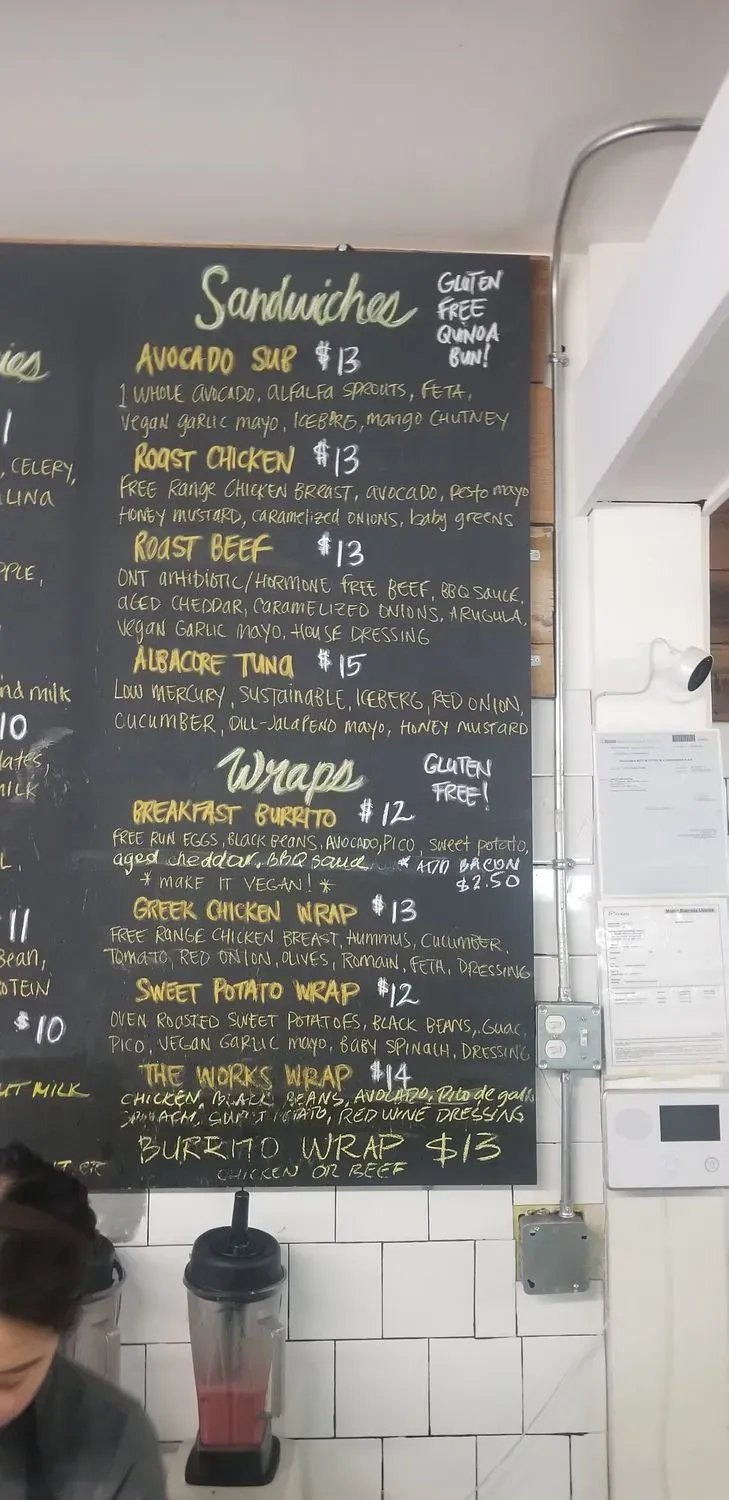 ies
1
, CELERY,
LINA
PPLE,
nd milk
10
lates,
MILK
L,
11
Bean,
OTEIN
$10
UT MILK
Sandwiches
GLUTEN
FREE
QUINOA
BUN!
AVOCADO SUB $13
1 WHOLE AVOCADO, ALFALFA SPROUTS, FETA,
Vegan garlic mayo, ICEBERG, mango CHUTNEY
ROAST CHICKEN $13
FREE Range CHICKEN BREAST, avocado, pesto mayo
HONEY MUSTARD, caramelized ONIONS, baby greens
ROAST BEEF $13
ONT antibiotic/HORMONE FREE BEEF, BBQ SAUCE,
AGED CHEDDAR, CARAMELIZED ONIONS, ARUGULA,
Vegan GARLIC mayo, HOUSE DRESSING
ALBACORE TUNA $15
LOW MERCURY, SUSTAINABLE, ICEBERG, RED ONION,
CUCUMBER, DILL-JALAPENO mayo, HONEY MUSTARD
Wraps
GLUTEN
FREE!
BREAKFAST BURRITO $12
FREE RUN EGGS, BLACK BEANS, AVOCADO, PICO, sweet potato,
aged cheddar, BBQ sauce * ADD BACON
$2.50
* MAKE IT VEGAN! *
GREEK CHICKEN WRAP $13
FREE RANGE CHICKEN BREAST, HUMMUS, CUCUMBER,
TOMATO, RED ONION, OLIVES, ROMAIN, FETA, DRESSING
SWEET POTATO WRAP $12
OVEN ROASTED SWEET POTATOES, BLACK BEANS, GUAC,
PICO, VEGAN GARLIC mayo, BABY SPINACH, DRESSING
THE WORKS WRAP $14
CHICKEN, BLACK BEANS, AVOCADO, Pico de gallo
SPINACH, SWEET POTATO, RED WINE DRESSING
BURRITO WRAP $13
CHICKEN OR BEEF